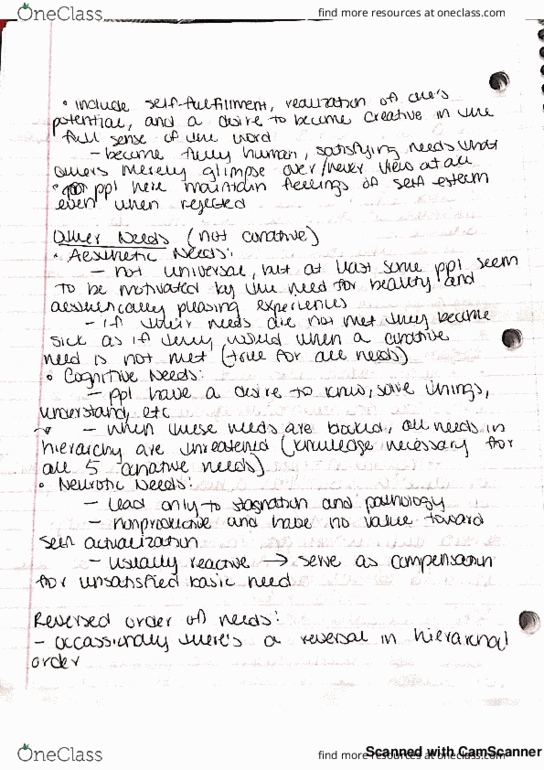 OneClass
find more resources at oneclass.com
• include self-fulfillment, realization of one's
potential, and a desire to become creative in the
full sense of the word
– become fully human, satisfying needs that
others merely glimpse over/never view at all
• ppl here maintain feelings of self esteem
even when rejected
Other Needs (not conative)
• Aesthetic Needs:
– not universal, but at least some ppl seem
to be motivated by the need for beauty and
aesthetically pleasing experiences
– if their needs are not met they become
sick as if they would when a conative
need is not met (true for all needs)
• Cognitive Needs:
– ppl have a desire to know, solve things,
understand, etc
– when these needs are blocked, all needs in
hierarchy are threatened (knowledge necessary for
all 5 conative needs)
• Neurotic Needs:
– lead only to stagnation and pathology
– nonproductive and have no value toward
self actualization
– usually reactive → serve as compensation
for unsatisfied basic need
Reversed order of needs:
– occassionally there's a reversal in hierarchal
order
OneClass
find more resources at oneclass.com
Scanned with CamScanner